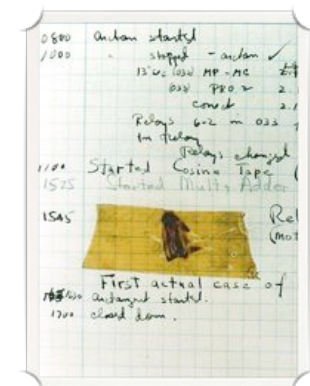 0800 antan started
1000 " stopped - antan ✓
13" uc (032) MP - MC
(033) PRO 2 2.
conect 2.1
Relays 6-2 in 033
in relay
Relays changed
1100 Started Cosine Tape (
1525 Started Mult+ Adder
1545 Rel
(mot
First actual case of
1630 antangent started.
1700 closed down.